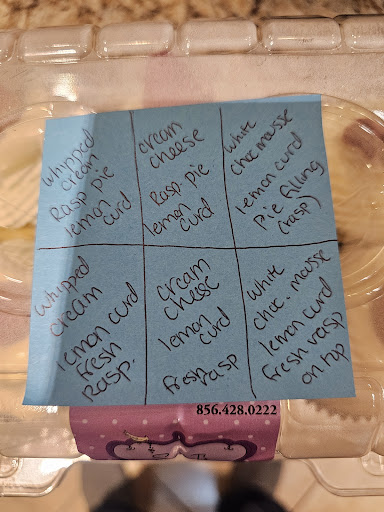 whipped
cream
Rasp pie
lemon
curd
cream
cheese
Rasp pie
lemon
curd
white
choc mousse
lemon curd
Pie filling
(rasp)
whipped
cream
lemon curd
fresh
Rasp.
cream
cheese
lemon
curd
fresh rasp
white
choc. mousse
lemon curd
fresh rasp
on top
856.428.0222